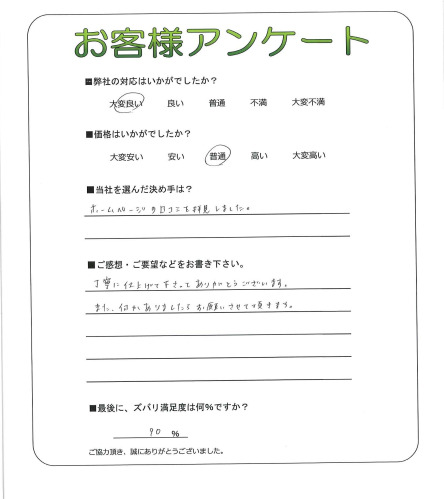 お客様アンケート
■弊社の対応はいかがでしたか？
大変良い 良い 普通 不満 大変不満
■価格はいかがでしたか？
大変安い 安い 普通 高い 大変高い
■当社を選んだ決め手は？
ホームページの口コミを拝見しました。
■ご感想・ご要望などをお書き下さい。
丁寧に仕上げて下さってありがとうございます。
また、何かありましたらお願いさせて頂きます。
■最後に、ズバリ満足度は何％ですか？
90 ％
ご協力頂き、誠にありがとうございました。